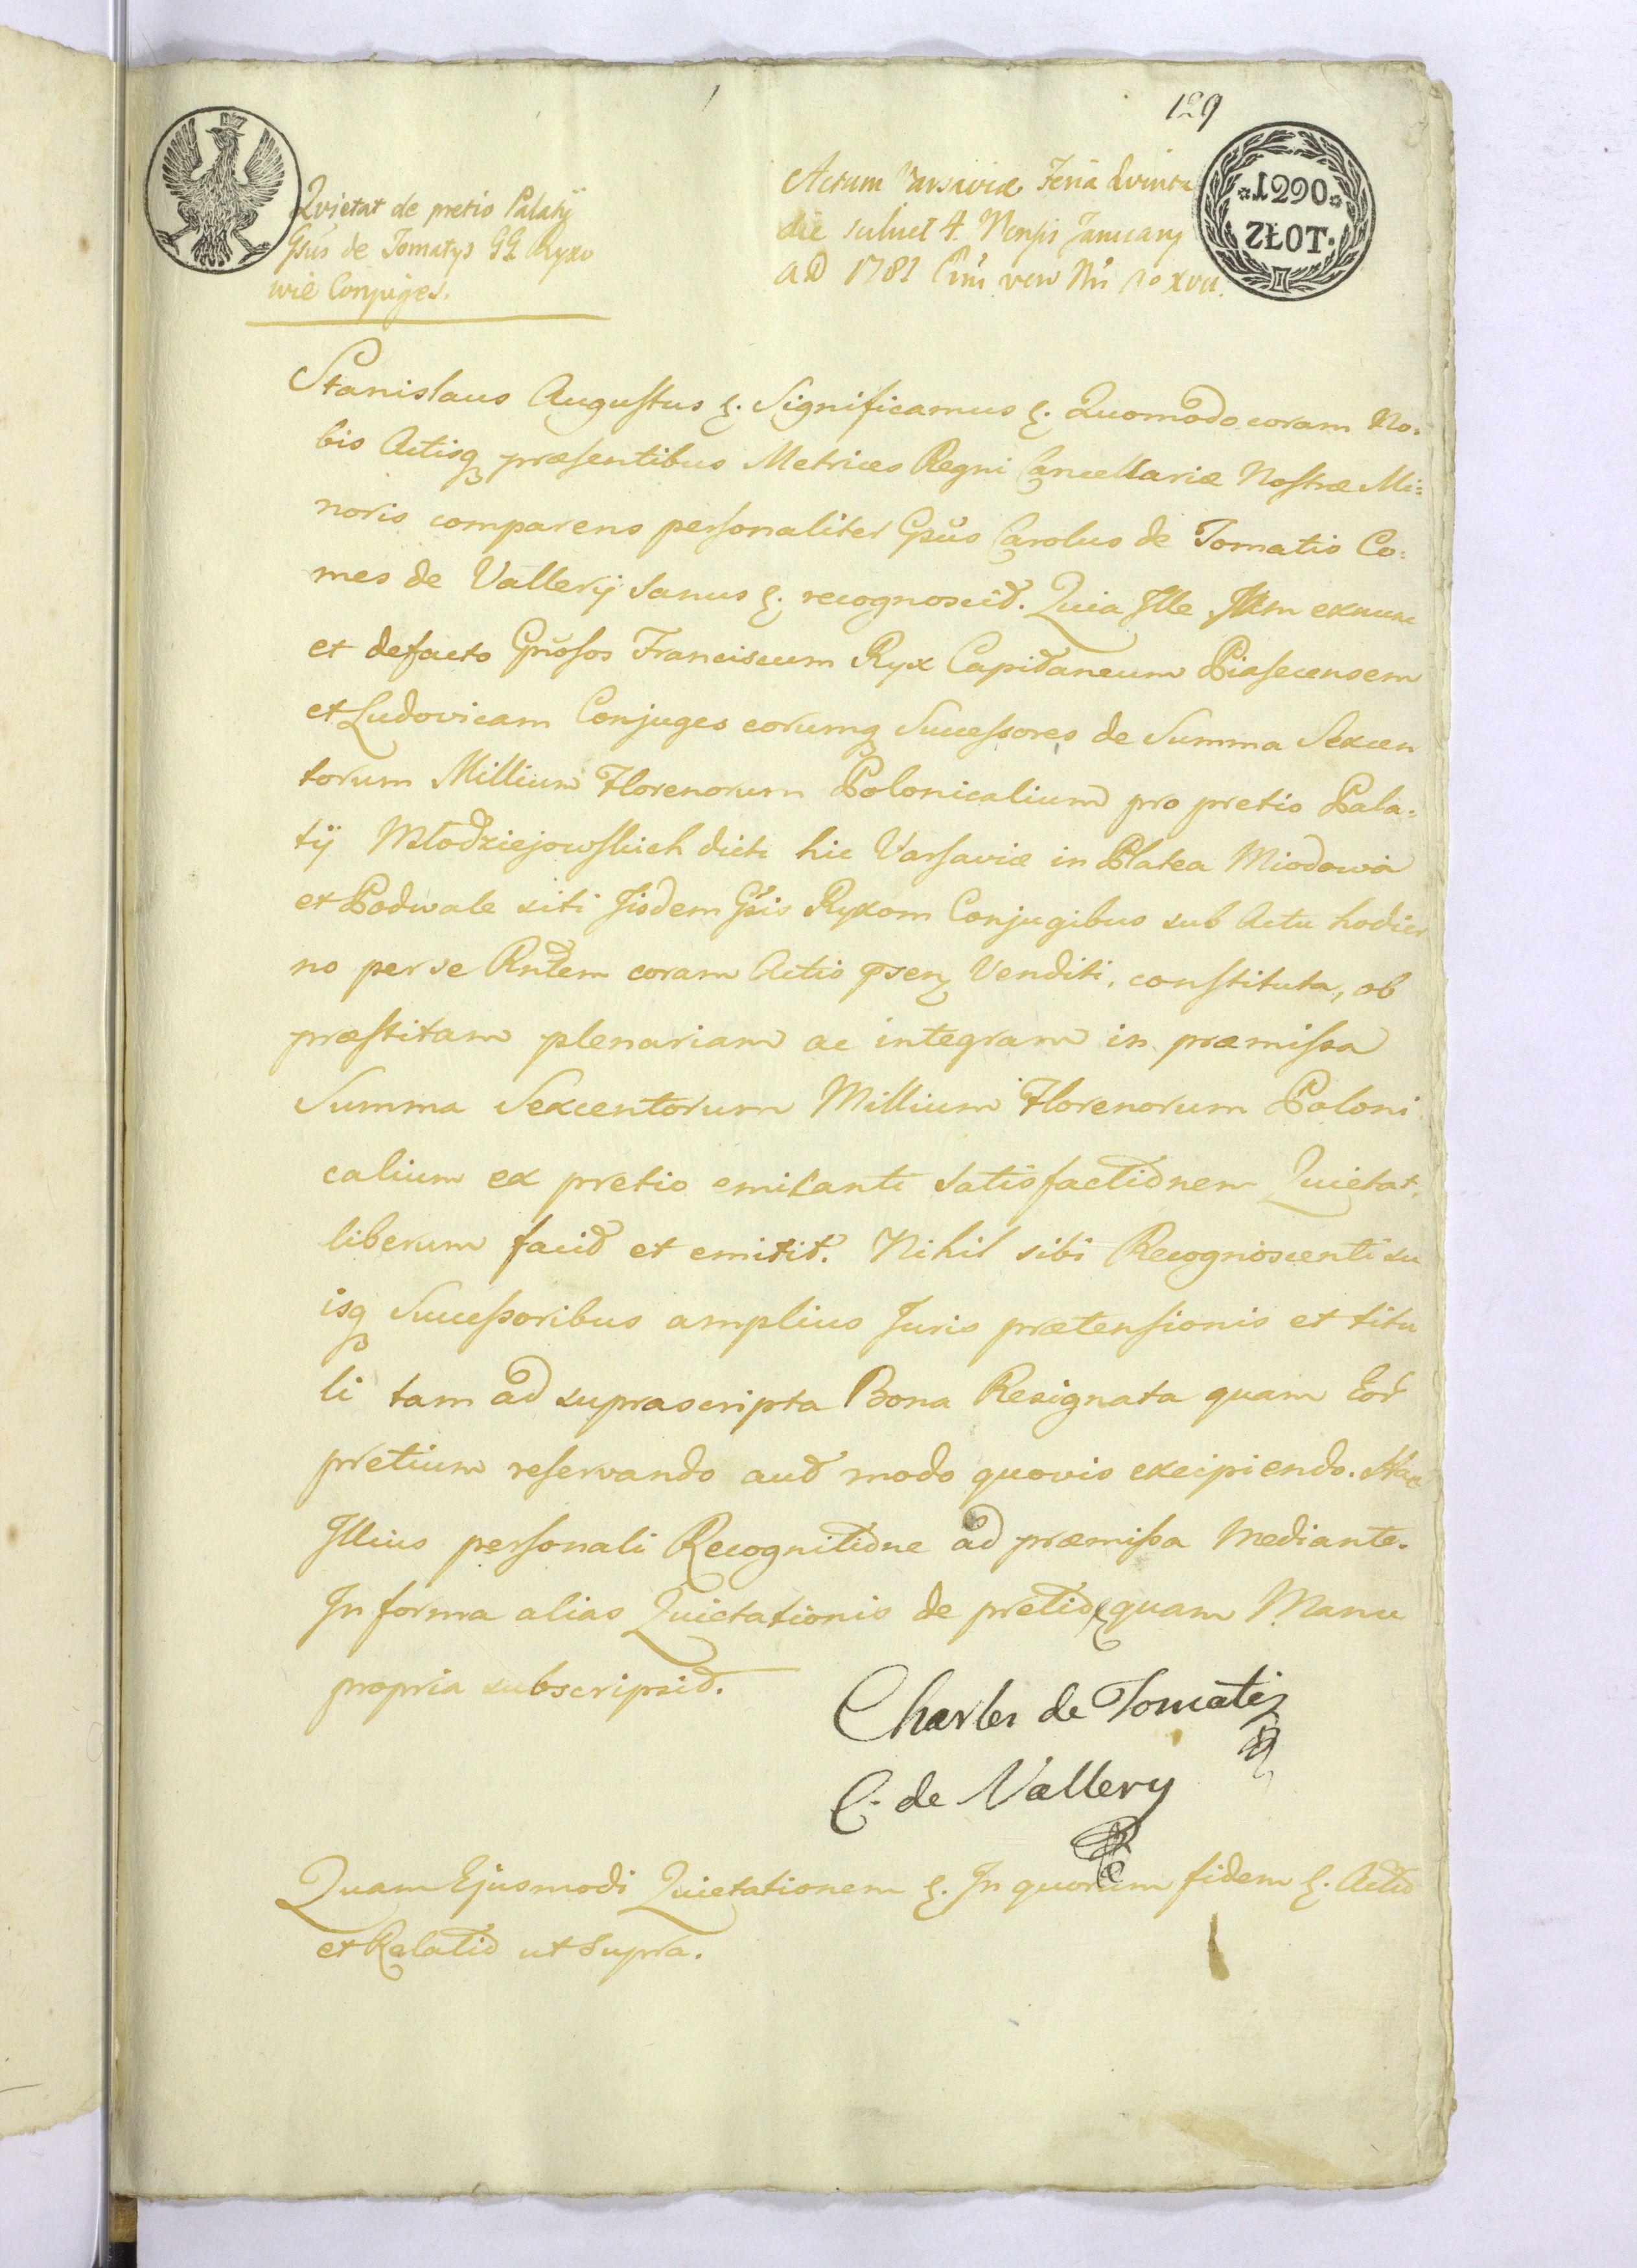 129
1290
ZŁOT.
Qvietat de pretio Palatÿ
Gsũs de Tomatys GG Ryxo
wie Conjuges.
Actum Varsaviæ Feria Qvinta
die 4. Mensis January
AD 1781
Stanislaus Augustus &. Significamus &. Quomodo coram No=
bis Actisq præsentibus Metrices Regni Cancellariæ Nostræ Mi=
noris comparens personaliter Gsũs Carolus de Tomatis Co=
mes de Vallery sanus &. recognovit. Quia Ille exnunc
et defacto Gñosos Franciscum Ryx Capitaneum Piasecensem
et Ludovicam Conjuges eorumq Successores de Summa Sexcen
torum Millium Florenorum Polonicalium pro pretio Pala=
tÿ Młodziejowskich dicti hic Varsaviæ in Platea Miodowa
et Podwale siti Iisdem Gsis Ryxom Conjugibus sub Actu hodier
no per se Rñtem coram Actis psen Venditi, constituta, ob
præstitam plenariam ac integram in præmissa
Summa Sexcentorum Millium Florenorum Poloni
calium ex pretio emitanti satisfactionem Quietat,
liberum facit et emitit. Nihil sibi Recognoscenti su
isq Successoribus amplius Juris prætensionis et titu
li tam ad suprascripta Bona Resignata quam Eor
pretium reservando aut modo quovis excipiendo. Hac
Illius personali Recognitione ad præmissa Mediante.
In forma alias Quietationis de pretio quam Manu
propria subscripsit.
Charles de Tomatis
C. de Vallery
Quam Ejusmodi Quietationem &. In quorum fidem &. Actis
et Relatio ut supra.